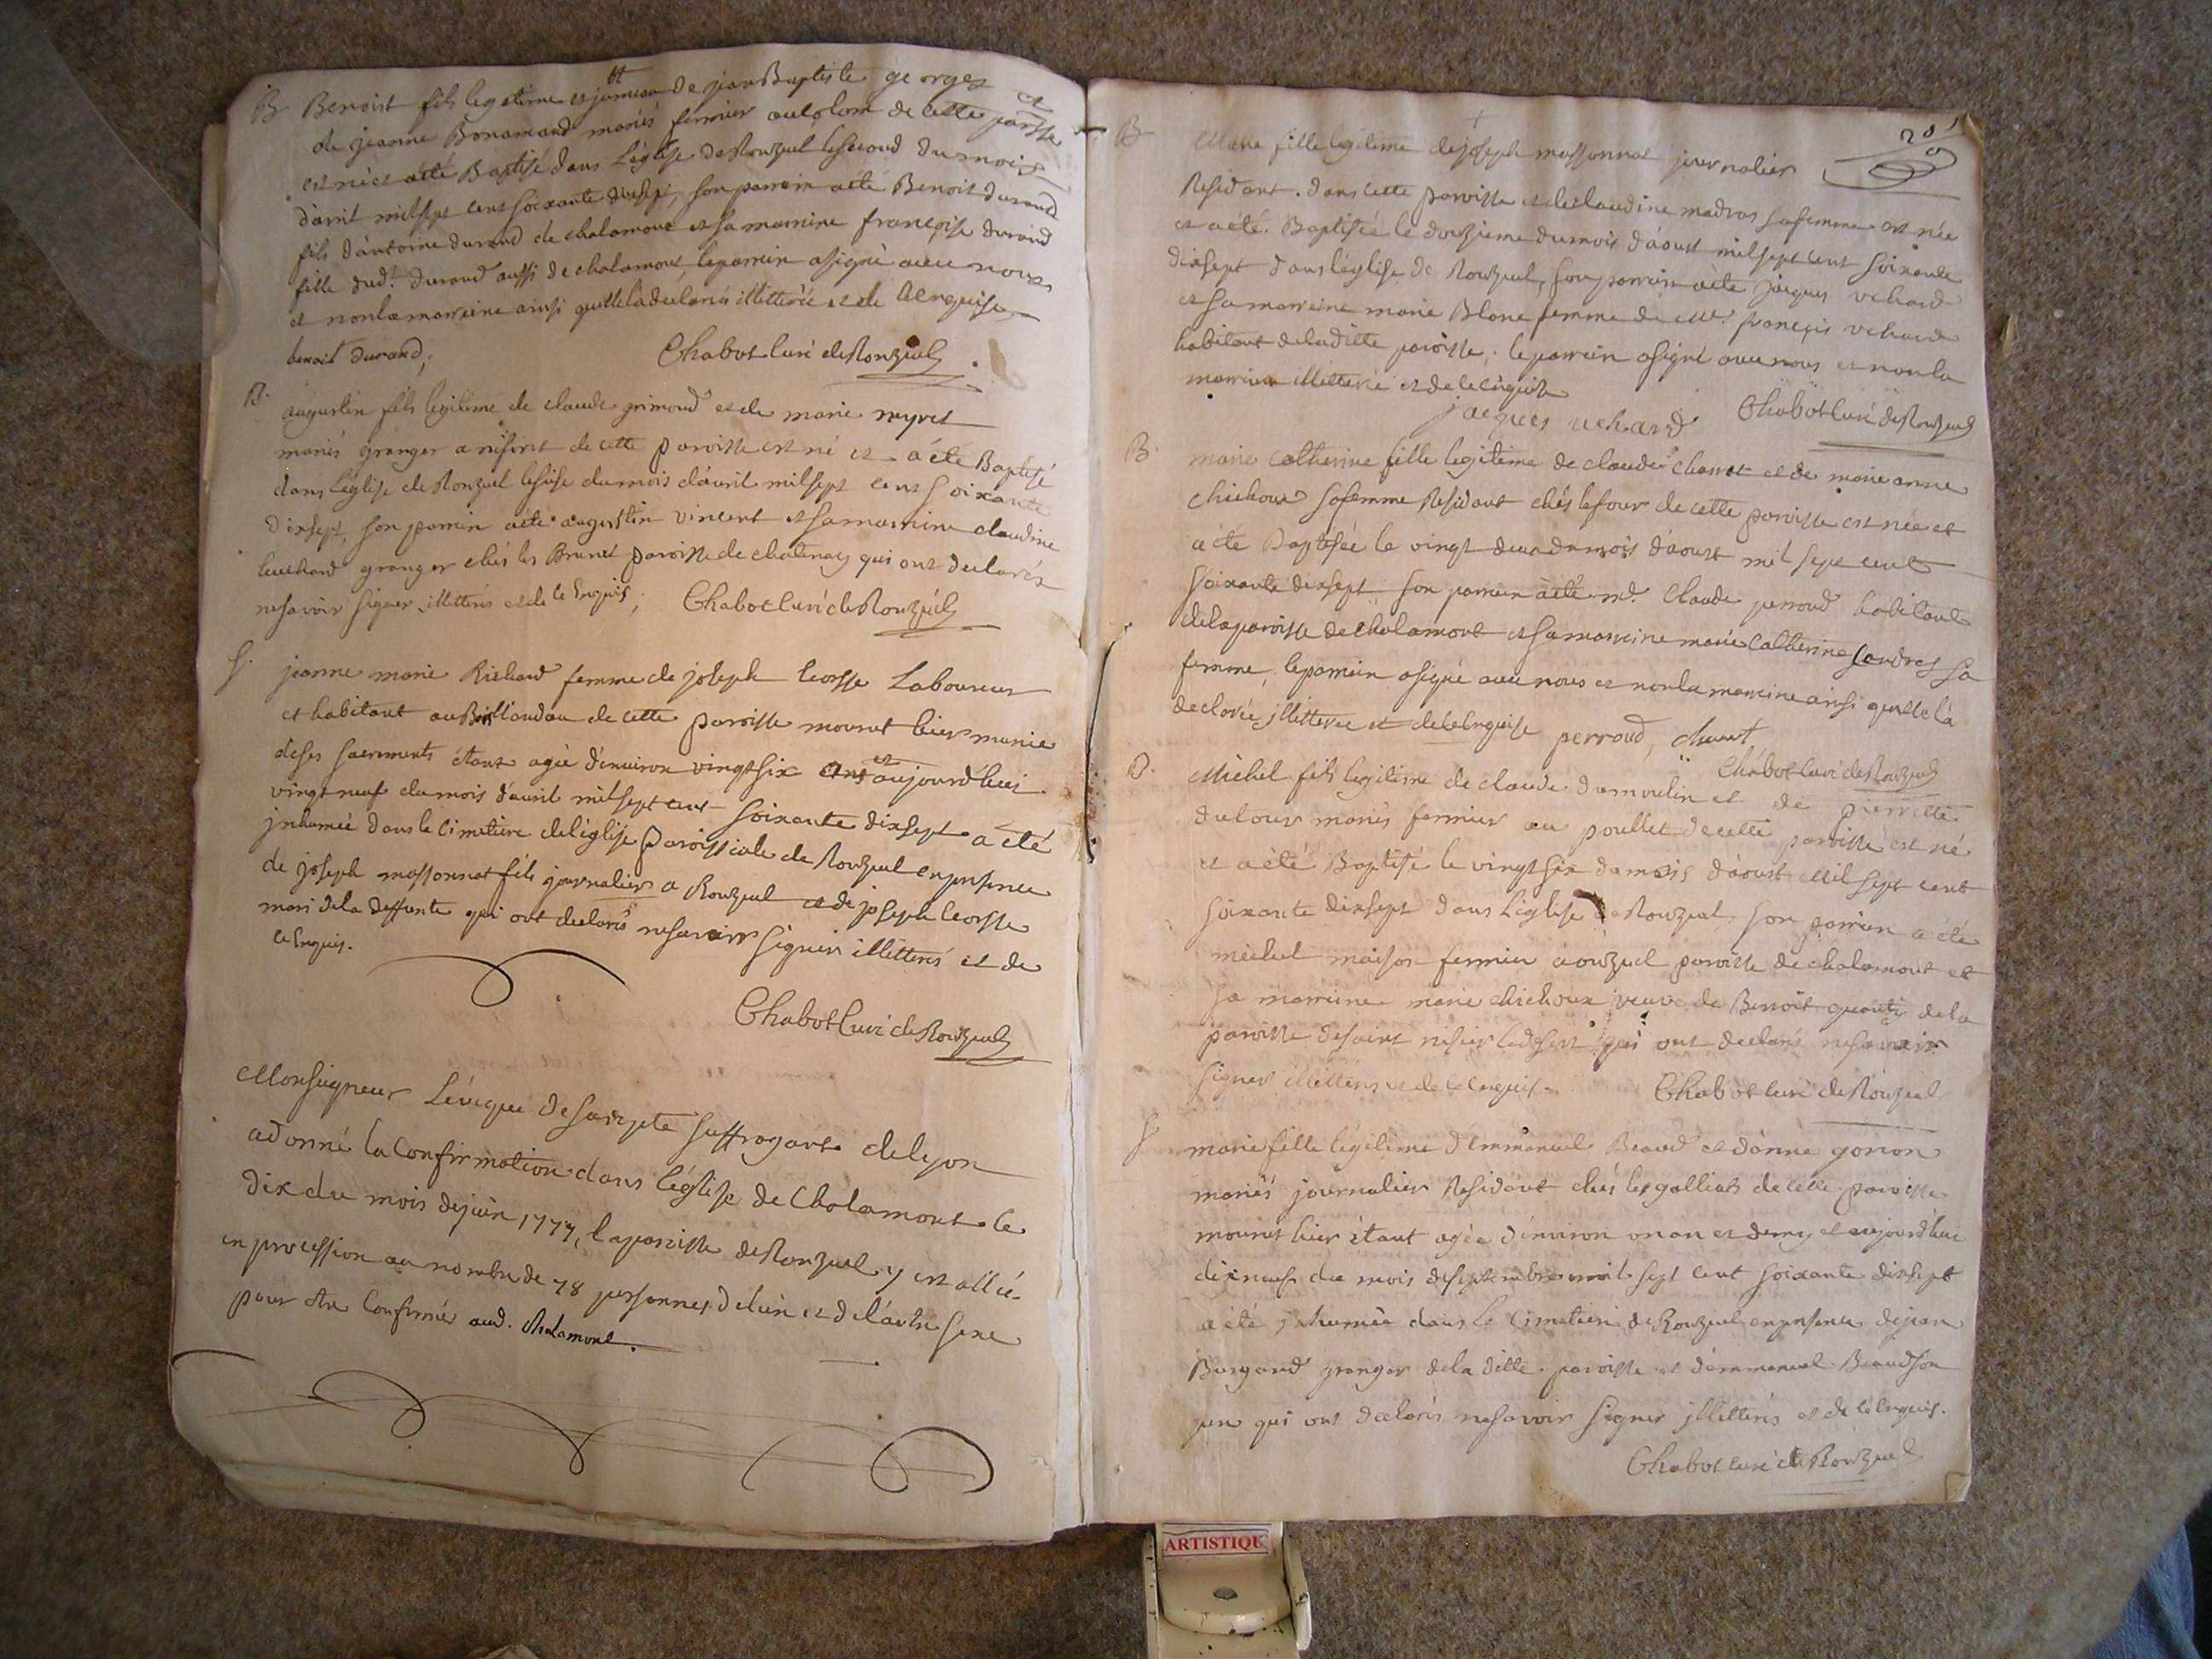 B Benoist fils legitime et jumeau de jean Baptiste georges et
de jeanne Bonamand mariés fermier au colom de cette parsse
est né et a été Baptisé dans L'église de Ronzuel le second du mois
d'avril mil sept cent soixante dixsept, son parrein a été Benoit durand
fils d'antoine durand de chalamont et sa marreine françoise durand
fille dud.t durand aussi de chalamont, le parrein a signé avec nous
et non la marreine ainsi quelle l'a declaré illitterée et de ce enquise
benoit durand, Chabot Curé de Ronzuel
B. augustin fils legitime de claude grimoud et de marie neyret
mariés granger a de cette paroisse est né et a été Baptisé
dans l'église de Ronzuel le seise du mois d'avril mil sept cent soixante
dixsept, son parrein a été augustin vincent et sa marreine claudine
granger chés les Brunet paroisse de chatenay qui ont declarés
ne savoir signer illitterés et de ce Enquis, Chabot Curé de Ronzuel
S. jeanne marie Richard femme de joseph Corsse Laboureur
et habitant au de cette paroisse mourut hier munie
de ses sacrements étant agée d'environ vingt six ans et aujourd'huis
vingt neuf du mois d'avril mil sept cent soixante dixsept a été
jnhumée dans le Cimetière de l'église paroissiale de Ronzuel en presence
de joseph massonnat fils journalier a Ronzuel et de joseph Corsse
mari de la deffunte qui ont declarés ne savoir signer illitterés et de
ce Enquis.
Chabot Curé de Ronzuel
Monseigneur L'évéque de sarepte suffragant de lyon
a donné la Confirmation dans l'église de Chalamont le
dix du mois de juin 1777, la paroisse de Ronzuel y est allée
en procession au nombre de 78 personnes de l'un et de l'autre sexe
pour être Confirmés aud. chalamont.
B Marie fille legitime de joseph massonnat journalier
Residant dans cette paroisse et de claudine madras sa femme est née
et a été Baptisée le douzieme du mois d'aoust mil sept cent soixante
dixsept dans l'église de Ronzuel, son parrein a été jacques uchard
et sa marreine marie Blanc femme de françois uchard
habitant de la ditte paroisse, le parrein a signé avec nous et non la
marreine illitterée et de ce enquise
jacques uchard Chabot Curé de Ronzuel
B. marie catherine fille legitime de claude charvet et de marie anne
chichoux sa femme Residant chés lefour de cette paroisse est née et
a été Baptisée le vingt deux du mois d'aoust mil sept cent
soixante dixsept son parrein a été m.e Claude perroud habitant
de la paroisse de chalamont et sa marreine marie Catherine sa
femme, le parrein a signé avec nous et non la marreine ainsi quelle l'a
declarée, illitterée et de ce Enquise perroud,
Chabot Curé de Ronzuel
B. Michel fils legitime de claude dumoulin et de pierrette
dulour mariés fermier au poullet de cette paroisse est né
et a été Baptisé le vingt six du mois d'aoust Mil sept cent
soixante dixsept dans L'église de Ronzuel, son parrein a été
michel maison fermier a ouzuel paroisse de chalamont et
sa marreine marie chichoux veuve de Benoit de la
paroisse de saint nisier le desert qui ont declarés ne savoir
signer illitterés et de ce Enquis. Chabot curé de Ronzuel
S marie fille legitime d'Emmanuel Beaud et d'anne gonon
mariés journalier Residant chés les galliats de cette paroisse
mourut hier étant agée d'environ un an et demy et aujourd'huis
dixneuf du mois de septembre mil sept cent soixante dixsept
a été jnhumée dans le Cimetière de Ronzuel en presence de jean
granger de la ditte paroisse et d'emmanuel Beaud son
pere qui ont declarés ne savoir signer jllitterés et de ce Enquis.
Chabot curé de Ronzuel
ARTISTIQU